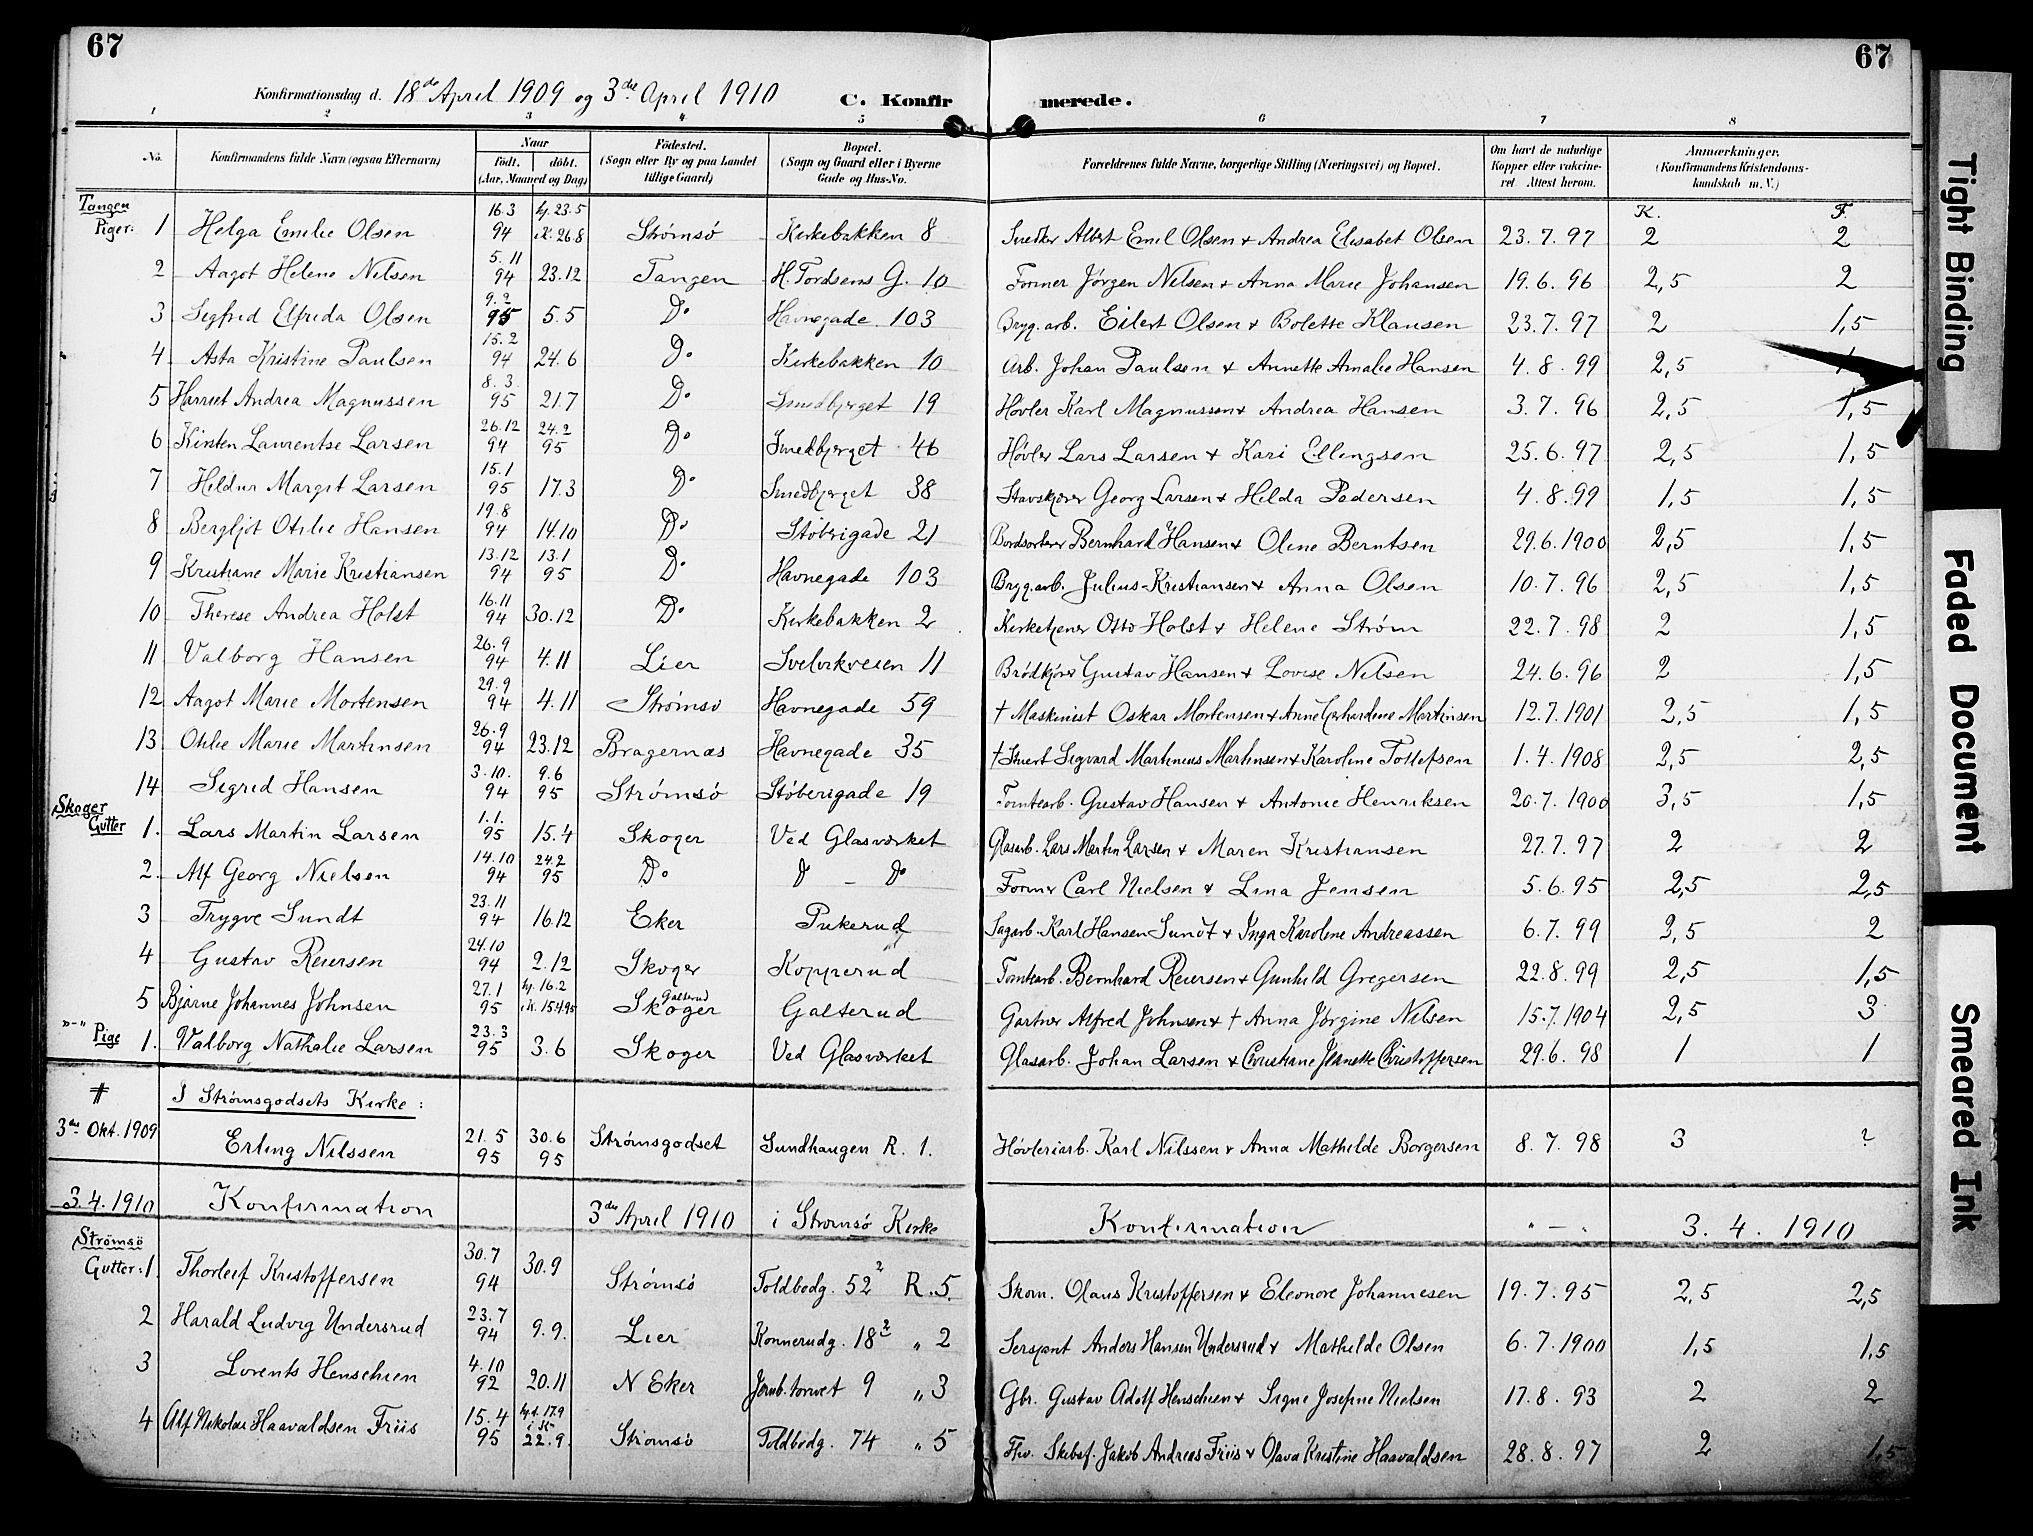 67
67
Konfirmationsdag d. 18de April 1909 og 3die April 1910 C. Konfir merede.
1 2 3 4 5 6 7 8
No. Konfirmandens fulde Navn (ogsaa Efternavn) Naar født. døbt. (Aar, Maaned og Dag) Fødested. (Sogn eller By og paa Landet tillige Gaard) Bopæl. (Sogn og Gaard eller i Byerne Gade og Hus-No. Forældrenes fulde Navne, borgerlige Stilling (Næringsvei) og Bopæl. Om havt de naturlige Kopper eller vakcineret Attest herom. Anmærkninger. (Konfirmandens Kristendomskundskab m. V.)
K. F.
Tangen
Piger: 1 Helga Emilie Olsen 16.3 94 hj. 23.5 i K. 26.8 Strømsö Kirkebakken 8 Snedker Albert Emil Olsen & Andrea Elisabet Olsen 23.7.97 2 2
2 Aagot Helene Nilsen 5.11 94 23.12 Tangen H. Tordsens G. 10 Former Jørgen Nilsen & Anna Marie Johansen 19.6.96 2,5 2
3 Sigfrid Elfrida Olsen 9.2 95 5.5 Do Havnegade 103 Bryg.arb. Eilert Olsen & Bolette Klausen 23.7.97 2 1,5
4 Asta Kristine Paulsen 15.2 94 24.6 Do Kirkebakken 10 Arb. Johan Paulsen & Annette Amalie Hansen 4.8.99 2,5
5 Harriet Andrea Magnussen 8.3. 95 21.7 Do Smedbjerget 19 Høvler Karl Magnussen & Andrea Hansen 3.7.96 2,5 1,5
6 Kirsten Laurentse Larsen 26.12 94 24.2 95 Do Smedbjerget 46 Høvler Lars Larsen & Kari Ellingsen 25.6.97 2,5 1,5
7 Hildur Margit Larsen 15.1 95 17.3 Do Smedbjerget 38 Stavskjærer Georg Larsen & Hilda Pedersen 4.8.99 1,5 1,5
8 Bergljot Otilie Hansen 19.8 94 14.10 Do Støberigade 21 Bordsorterer Bernhard Hansen & Oline Berntsen 29.6.1900 2,5 1,5
9 Kristiane Marie Kristiansen 13.12 94 13.1 95 Do Havnegade 103 Bryg.arb. Julius Kristiansen & Anna Olsen 10.7.96 2,5 1,5
10 Therese Andrea Holst 16.11 94 30.12 Do Kirkebakken 2 Kirketjener Otto Holst & Helene Strøm 22.7.98 2 1,5
11 Valborg Hansen 26.9 94 4.11 Lier Svelvikveien 11 Brødkjører Gustav Hansen & Lovise Nilsen 24.6.96 2 1,5
12 Aagot Marie Mortensen 29.9 94 4.11 Strømsö Havnegade 59 † Maskinist Oskar Mortensen & Anne Gerhardine Martinsen 12.7.1901 2,5 1,5
13 Otilie Marie Martinsen 26.9 94 23.12 Bragernæs Havnegade 35 † Stuert Sigvard Martinius Martinsen & Karoline Tollefsen 1.4.1908 2,5 2,5
14 Sigrid Hansen 3.10. 94 9.6 95 Strømsö Støberigade 19 Tomtearb. Gustav Hansen & Antonie Henriksen 20.7.1900 3,5 1,5
Skoger
Gutter 1. Lars Martin Larsen 1.1. 95 15.4 Skoger Ved Glasværket Glasarb. Lars Martin Larsen & Maren Kristiansen 27.7.97 2 2
2. Alf Georg Nielsen 14.10 94 24.2 95 Do D – Do Former Carl Nielsen & Lina Jensen 5.6.95 2,5 2,5
3 Trygve Sundt 23.11 94 16.12 Eker Pukerud Sagarb. Karl Hansen Sundt & Inga Karoline Andreassen 6.7.99 3,5 2
4 Gustav Reiersen 24.10 94 2.12 Skoger Kopperud Tomtearb. Bernhard Reiersen & Gunhild Gregersen 22.8.99 2,5 1,5
5 Bjarne Johannes Johnsen 27.1 95 hj. 16.2 i K. 15.4.95 Galterud Skoger Galterud Gartner Alfred Johnsen & † Anna Jørgine Nilsen 15.7.1904 2,5 3
"–" Pige 1. Valborg Nathalie Larsen 23.3 95 3.6 Skoger Ved Glasværket Glasarb. Johan Larsen & Christiane Jeanette Christoffersen 29.6.98 1 1
# I Strømsgodsets Kirke:
3die Okt. 1909 Erling Nilssen 21.5 95 30.6 95 Strømsgodset Sundhaugen R. 1. Høvleriarb. Karl Nilssen & Anna Mathilde Borgersen 8.7.98 3 ?
3.4.1910 Konfirmation 3die April 1910 i Strømsö Kirke Konfirmation " – " 3.4.1910
Strømsö
Gutter: 1. Thorleif Kristoffersen 30.7 94 30.9 Strømsö Toldbodg. 52² R. 5. Skom. Olaus Kristoffersen & Eleonore Johannesen 19.7.95 2,5 2,5
2 Harald Ludvig Undersrud 23.7 94 9.9. Lier Konnerudg. 18² " 2 Sersjant Anders Hansen Undersrud & Mathilde Olsen 6.7.1900 1,5 1,5
3 Lorents Henschien 4.10 92 20.11 N Eker Jernb.torvet 9 " 3 Gbr. Gustav Adolf Henschien & Signe Josefine Nielsen 17.8.93 2 2
4 Alf Nikolai Haavaldsen Friis 15.4 95 hjd. 17.9 22.9. Strømsö Toldbodg. 74 " 5 Fhv. Skibsf. Jakob Andreas Friis & Olava Kristine Haavaldsen 28.8.97 2 1,5
Tight Binding
Faded Document
Smeared Ink